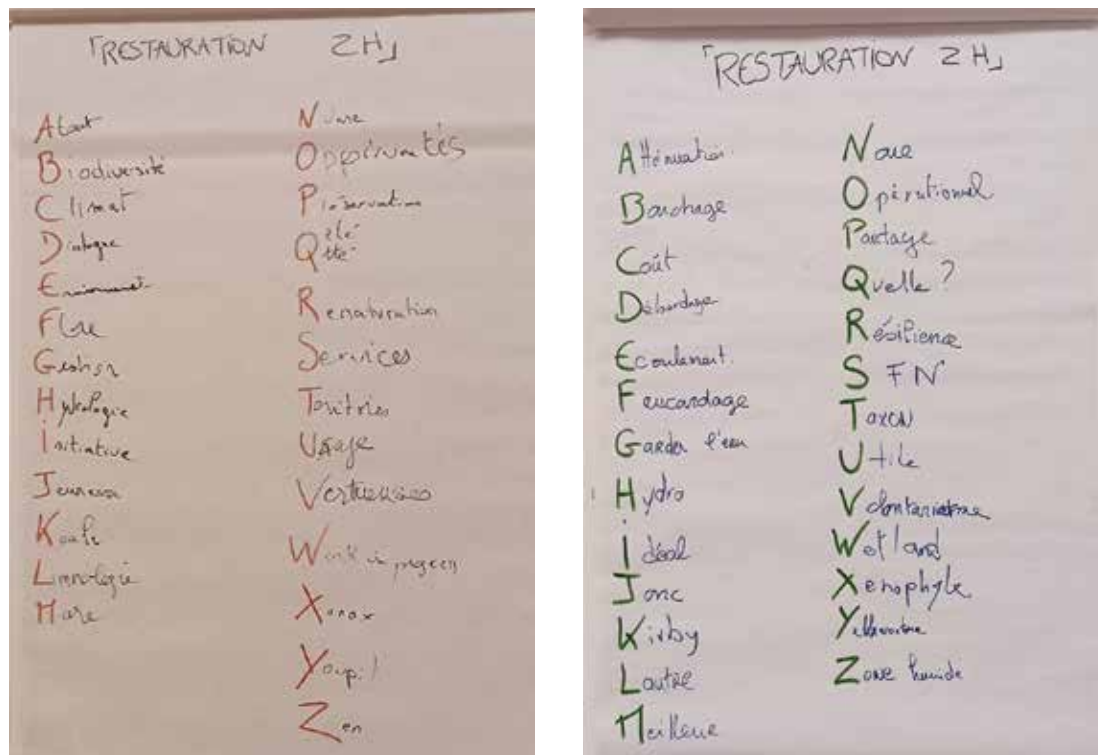 「RESTAURATION ZH」
Atout
Biodiversité
Climat
Dialogue
Environnement
Flore
Gestion
Hydrologie
Initiative
Jeunesse
Koala
Limnologie
Mare
Nature
Opportunités
Préservation
Qlté
Qtté
Renaturation
Services
Territoires
Usage
Vertueuses
Work in progress
Xanax
Youpi!
Zen
「RESTAURATION ZH」
Atténuation
Bouchage
Coût
Débordage
Ecoulement
Faucardage
Garder l'eau
Hydro
Idéal
Jonc
Kirby
Loutre
Meilleure
Noue
Opérationnel
Partage
Quelle ?
Résilience
SFN
Taxon
Utile
Volontarisme
Wetland
Xénophyle
Zone humide